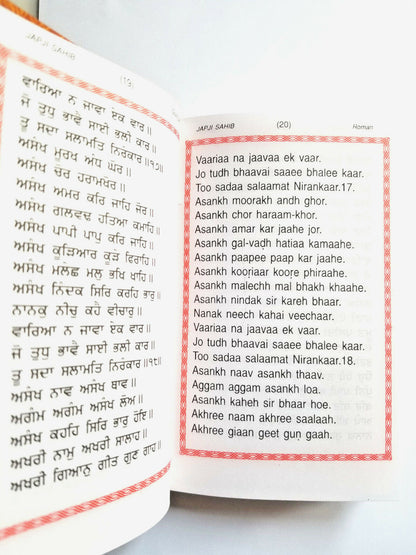 JAPJI SAHIB
(19)
ਵਾਰਿਆ ਨ ਜਾਵਾ ਏਕ ਵਾਰ॥
ਜੋ ਤੁਧੁ ਭਾਵੈ ਸਾਈ ਭਲੀ ਕਾਰ॥
ਤੂ ਸਦਾ ਸਲਾਮਤਿ ਨਿਰੰਕਾਰ॥੧੭॥
ਅਸੰਖ ਮੂਰਖ ਅੰਧ ਘੋਰ॥
ਅਸੰਖ ਚੋਰ ਹਰਾਮਖੋਰ॥
ਅਸੰਖ ਅਮਰ ਕਰਿ ਜਾਹਿ ਜੋਰ॥
ਅਸੰਖ ਗਲਵਢ ਹਤਿਆ ਕਮਾਹਿ॥
ਅਸੰਖ ਪਾਪੀ ਪਾਪੁ ਕਰਿ ਜਾਹਿ॥
ਅਸੰਖ ਕੂੜਿਆਰ ਕੂੜੇ ਫਿਰਾਹਿ॥
ਅਸੰਖ ਮਲੇਛ ਮਲੁ ਭਖਿ ਖਾਹਿ॥
ਅਸੰਖ ਨਿੰਦਕ ਸਿਰਿ ਕਰਹਿ ਭਾਰੁ॥
ਨਾਨਕੁ ਨੀਚੁ ਕਹੈ ਵੀਚਾਰੁ॥
ਵਾਰਿਆ ਨ ਜਾਵਾ ਏਕ ਵਾਰ॥
ਜੋ ਤੁਧੁ ਭਾਵੈ ਸਾਈ ਭਲੀ ਕਾਰ॥
ਤੂ ਸਦਾ ਸਲਾਮਤਿ ਨਿਰੰਕਾਰ॥੧੮॥
ਅਸੰਖ ਨਾਵ ਅਸੰਖ ਥਾਵ॥
ਅਗੰਮ ਅਗੰਮ ਅਸੰਖ ਲੋਅ॥
ਅਸੰਖ ਕਹਹਿ ਸਿਰਿ ਭਾਰੁ ਹੋਇ॥
ਅਖਰੀ ਨਾਮੁ ਅਖਰੀ ਸਾਲਾਹ॥
ਅਖਰੀ ਗਿਆਨੁ ਗੀਤ ਗੁਣ ਗਾਹ॥
JAPJI SAHIB
(20)
Roman
Vaariaa na jaavaa ek vaar.
Jo tudh bhaavai saaee bhalee kaar.
Too sadaa salaamat Nirankaar.17.
Asankh moorakh andh ghor.
Asankh chor haraam-khor.
Asankh amar kar jaahe jor.
Asankh gal-vaḍh hatiaa kamaahe.
Asankh paapee paap kar jaahe.
Asankh kooṛiaar kooṛe phiraahe.
Asankh malechh mal bhakh khaahe.
Asankh nindak sir kareh bhaar.
Nanak neech kahai veechaar.
Vaariaa na jaavaa ek vaar.
Jo tudh bhaavai saaee bhalee kaar.
Too sadaa salaamat Nirankaar.18.
Asankh naav asankh thaav.
Aggam aggam asankh loa.
Asankh kaheh sir bhaar hoe.
Akhree naam akhree saalaah.
Akhree giaan geet guṇ gaah.